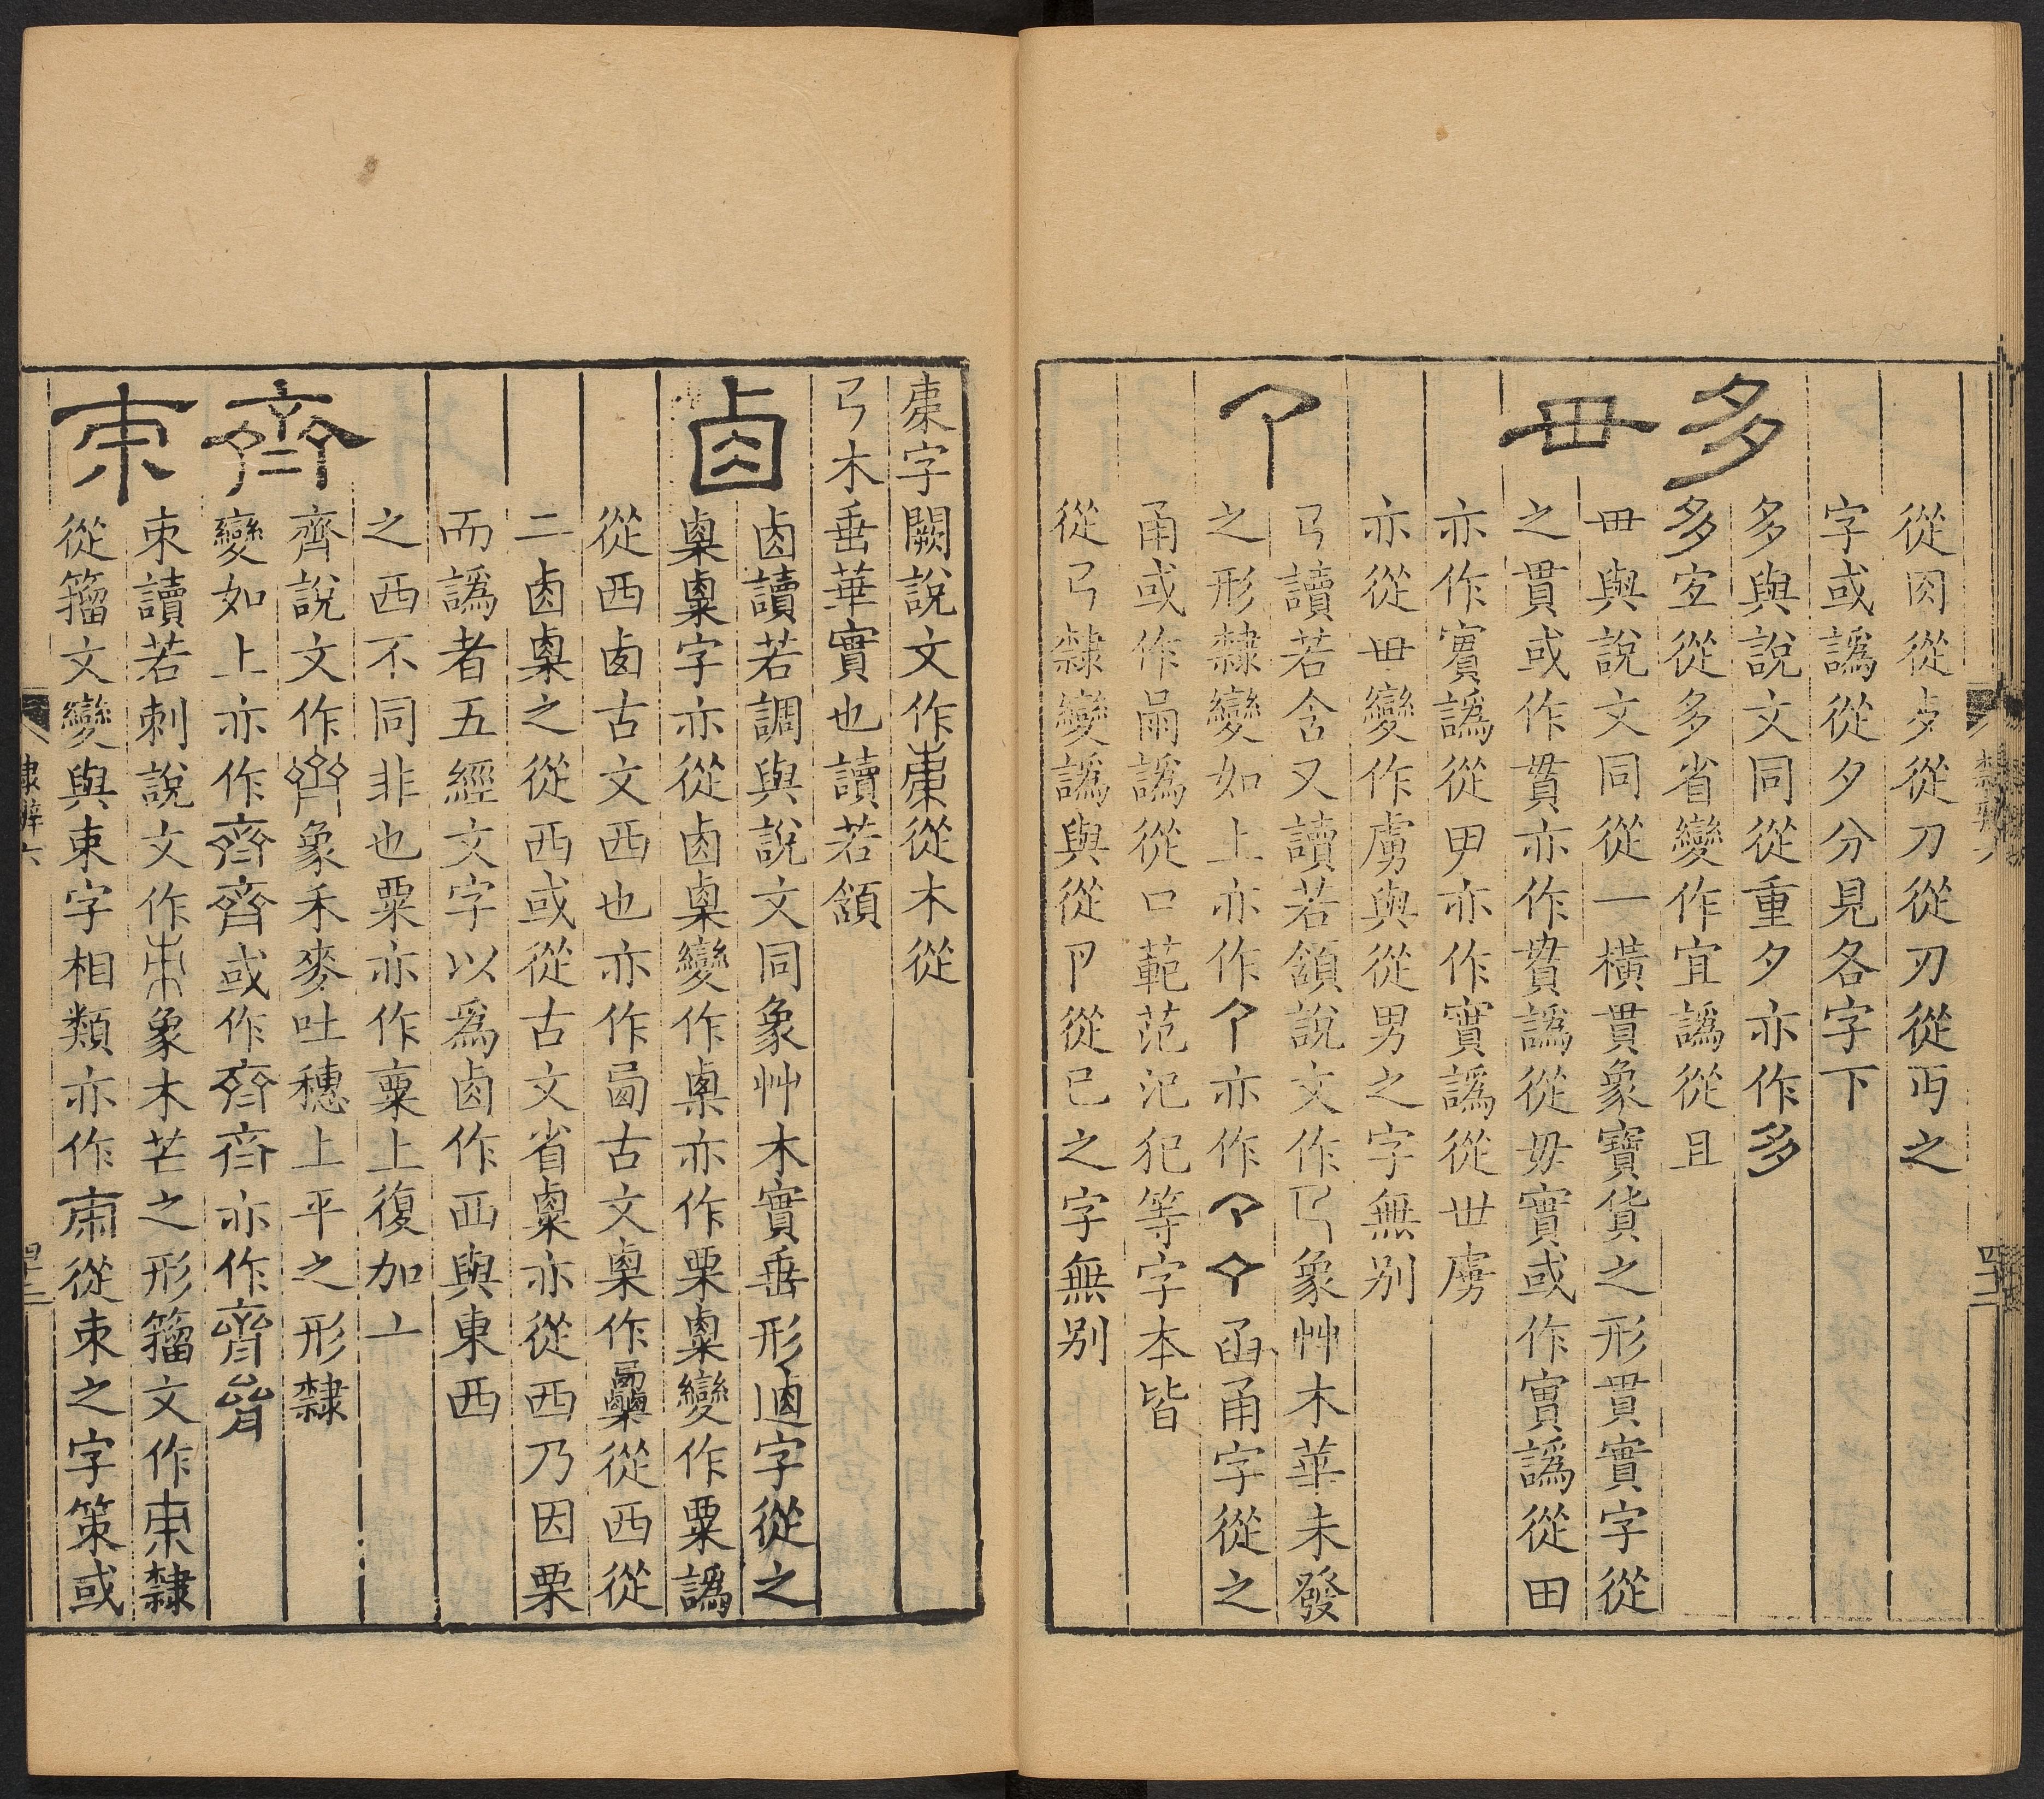 從肉從歺從刀從刃從丏之
字或譌從夕分見各字下
多
多與說文同從重夕亦作多
多宐從多省變作宜譌從且
毌
毌與說文同從一橫貫象寶貨之形貫實字從
之貫或作貫亦作貫譌從毋實或作實譌從田
亦作實譌從甲亦作實譌從丗虜
亦從毌變作虜與從男之字無别
㔾讀若含又讀若頷說文作㔾象艸木華未發
之形隸變如上亦作亦作函甬字從之
甬或作譌從口範范氾犯等字本皆
從㔾隸變譌與從卩從巳之字無别
㯥字闕說文作㯥從木從
㔾木垂華實也讀若頷
卣
卣讀若調與說文同象艸木實垂形逌字從之
㮚𥻆字亦從卣㮚變作㮚亦作栗𥻆變作粟譌
從西卤古文西也亦作古文㮚作從西從
二卣㮚之從西或從古文省𥻆亦從西乃因栗
而譌者五經文字以爲卣作覀與東西
之西不同非也粟亦作上復加亠
齊
齊說文作象禾麥吐穗上平之形隸
變如上亦作齊齊或作齊齊亦作齊
朿
朿讀若刺說文作朿象木芒之形籀文作隸
從籀文變與束字相類亦作從朿之字策或
隸辨六